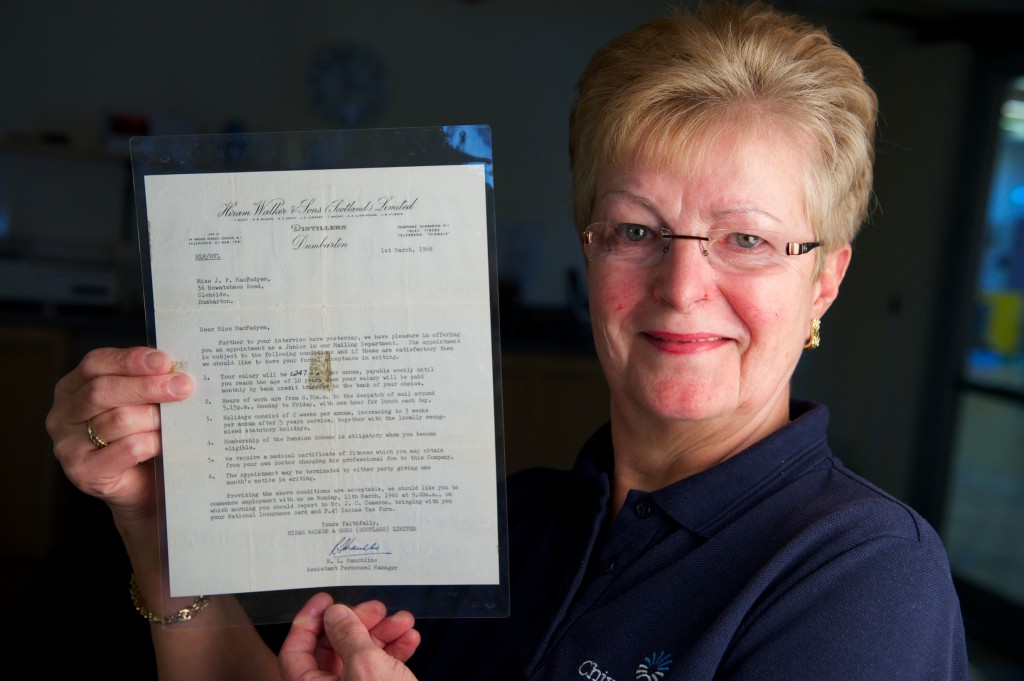 Hiram Walker & Sons (Scotland) Limited
DISTILLERS
Dumbarton
1st March, 1968
RLM/HVL
Miss J. P. MacFadyen,
36 Howatshaws Road,
Glenside,
Dumbarton.
Dear Miss MacFadyen,
Further to your interview here yesterday, we have pleasure in offering
you an appointment as a Junior in our Mailing Department. The appointment
is subject to the following conditions and if these are satisfactory then
we should like to have your formal acceptance in writing.
1. Your salary will be £247 per annum, payable weekly until
you reach the age of 18 years when your salary will be paid
monthly by bank credit transfer to the bank of your choice.
2. Hours of work are from 8.30a.m. to the despatch of mail around
5.15p.m., Monday to Friday, with one hour for lunch each day.
3. Holidays consist of 2 weeks per annum, increasing to 3 weeks
per annum after 5 years service, together with the locally recog-
nised statutory holidays.
4. Membership of the Pension Scheme is obligatory when you become
eligible.
5. We receive a medical certificate of fitness which you may obtain
from your own doctor charging his professional fee to this Company.
6. The appointment may be terminated by either party giving one
month's notice in writing.
Providing the above conditions are acceptable, we should like you to
commence employment with us on Monday, 11th March, 1968 at 9.00a.m., on
which morning you should report to Mr. J. C. Cameron, bringing with you
your National Insurance card and P.45 Income Tax form.
Yours faithfully,
HIRAM WALKER & SONS (SCOTLAND) LIMITED
R. L. Mauchline
Assistant Personnel Manager
Chiv